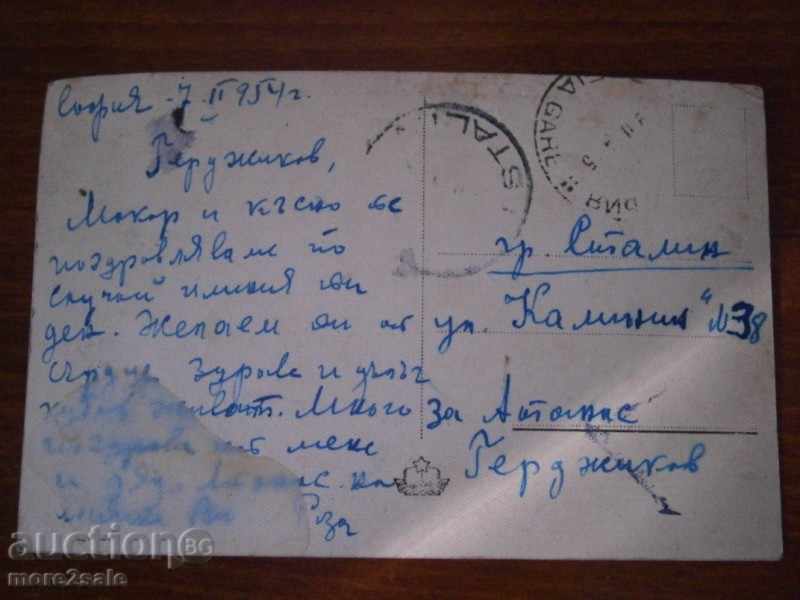 София 7. II 954 г.
Герджиков,
Макар и късно ве
поздравляваме по
случай имения ви
ден. Желаем ви от
сърце здраве и дълъг
живот. Много
поздрави от мене
и
Ви
STALI
гр. Сталин
ул. "Калинин" №38
за Атанас
Герджиков
auction BG
more2sale